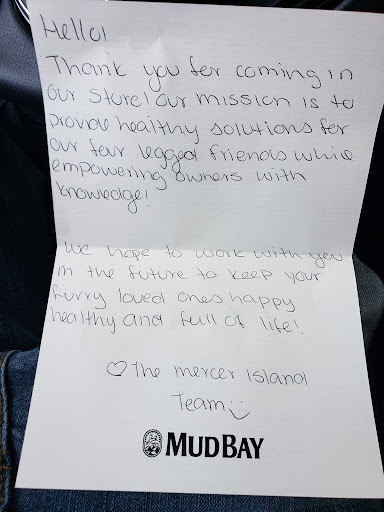 Hello!
Thank you for coming in
our store! Our mission is to
provide healthy solutions for
our four legged friends while
empowering owners with
knowledge!
We hope to work with you
in the future to keep your
furry loved ones happy
healthy and full of life!
♡ The mercer island
Team :)
MUDBAY